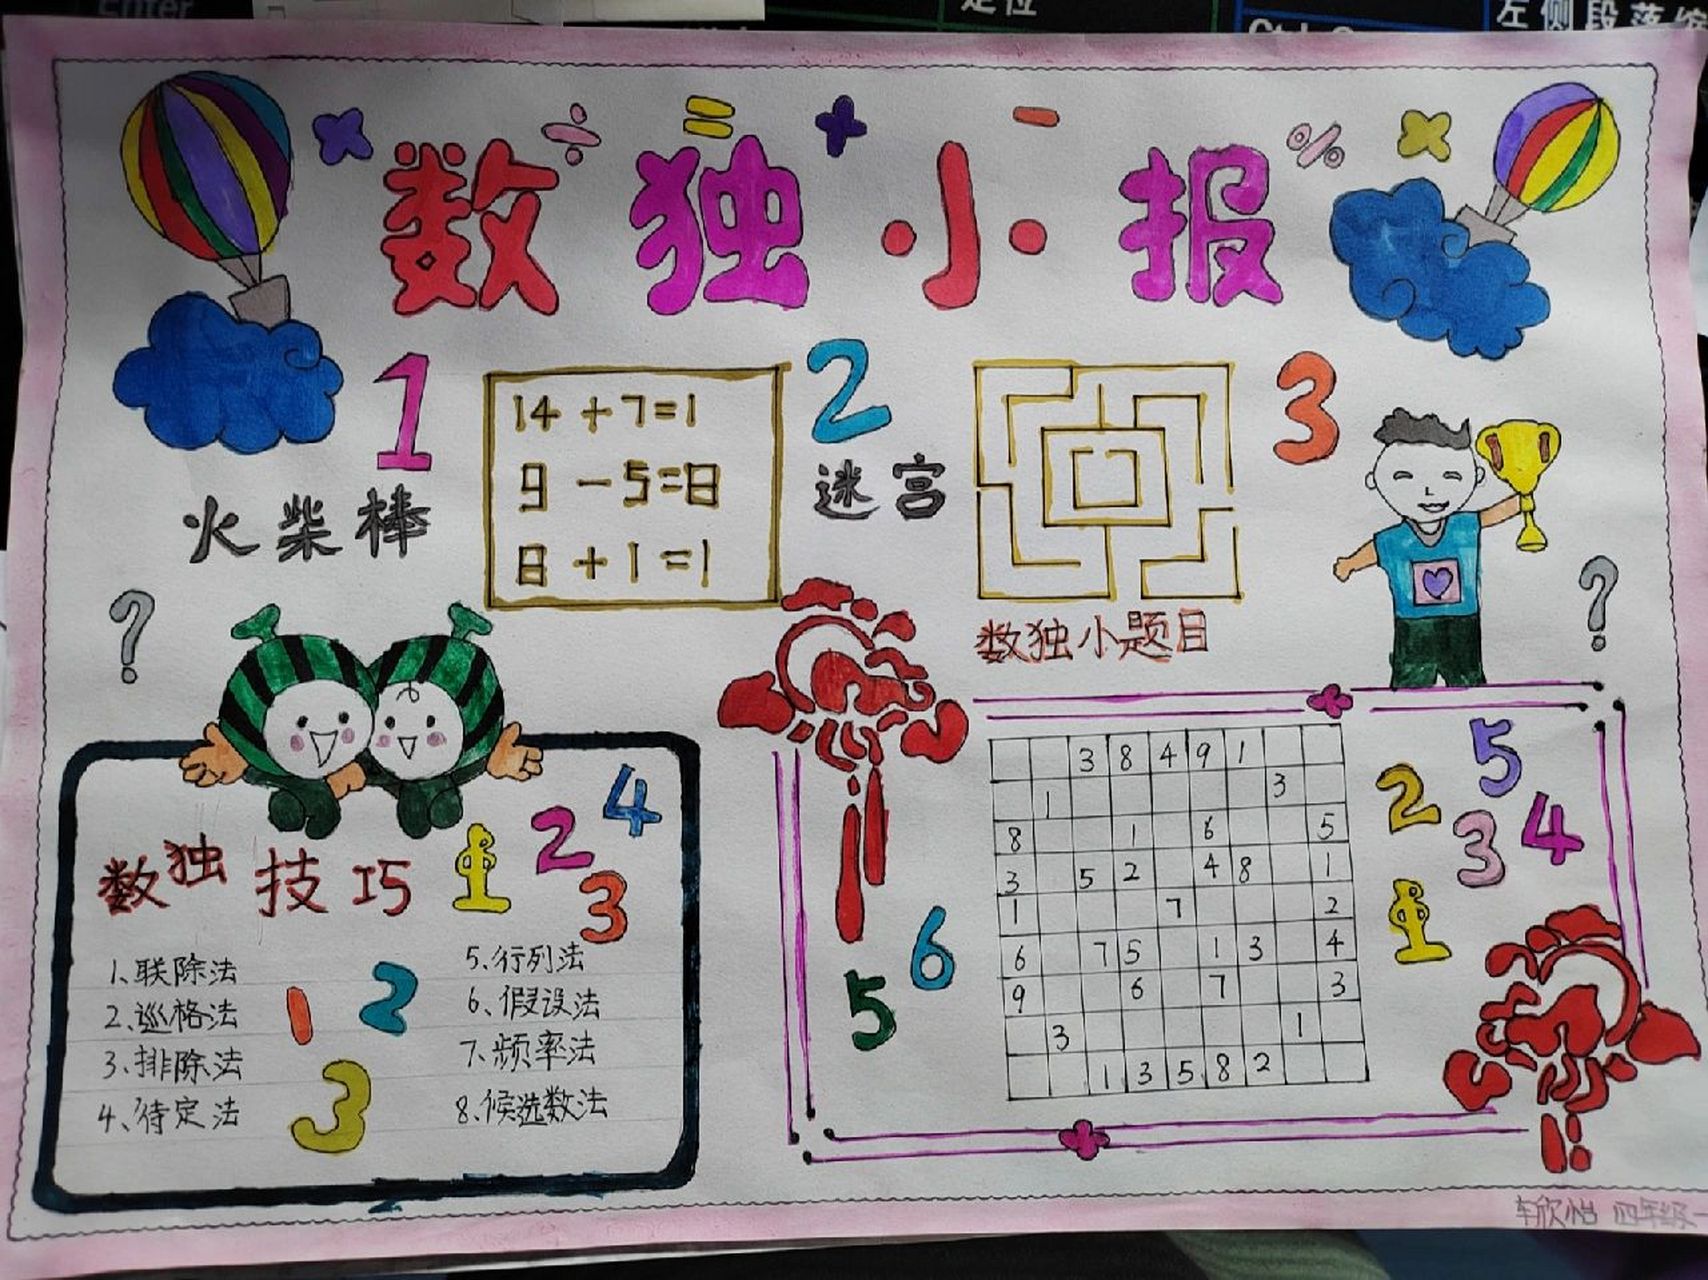 Enter
定位
左侧段落缩
× ÷ = + - % ×
数独小报
1
火柴棒
14+7=1
9-5=8
8+1=1
2
迷宫
3
?
?
数独小题目
3 8 4 9 1
1 3
8 1 6 5
3 5 2 4 8 1
1 7 2
6 7 5 1 3 4
9 6 7 3
3 1
1 3 5 8 2
5
2
3
4
1
6
5
数独技巧
1 2 3 4
1、联除法
2、巡格法
3、排除法
4、待定法
1 2
3
5、行列法
6、假设法
7、频率法
8、候选数法
车欣怡 四年级一